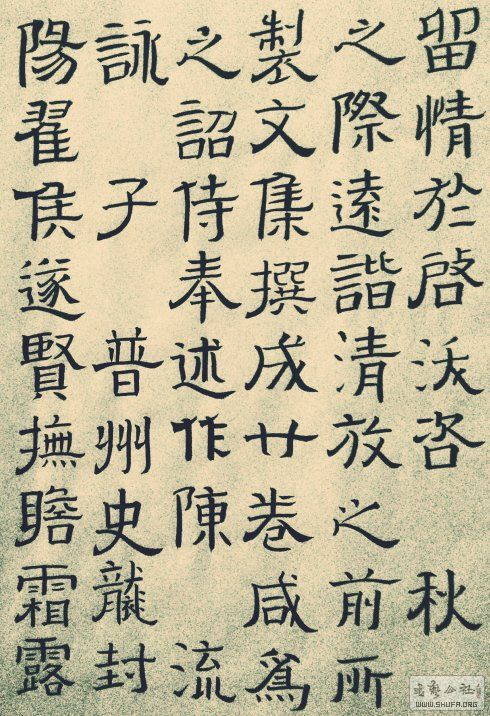 留情於啓沃咨 秋
之際遠諧清放之前所
製文集撰成廿卷咸爲
之詔侍奉述作陳 流
詠 子 普州史襲封
陽翟侯遂賢撫瞻霜露
WWW.SHUFA.ORG